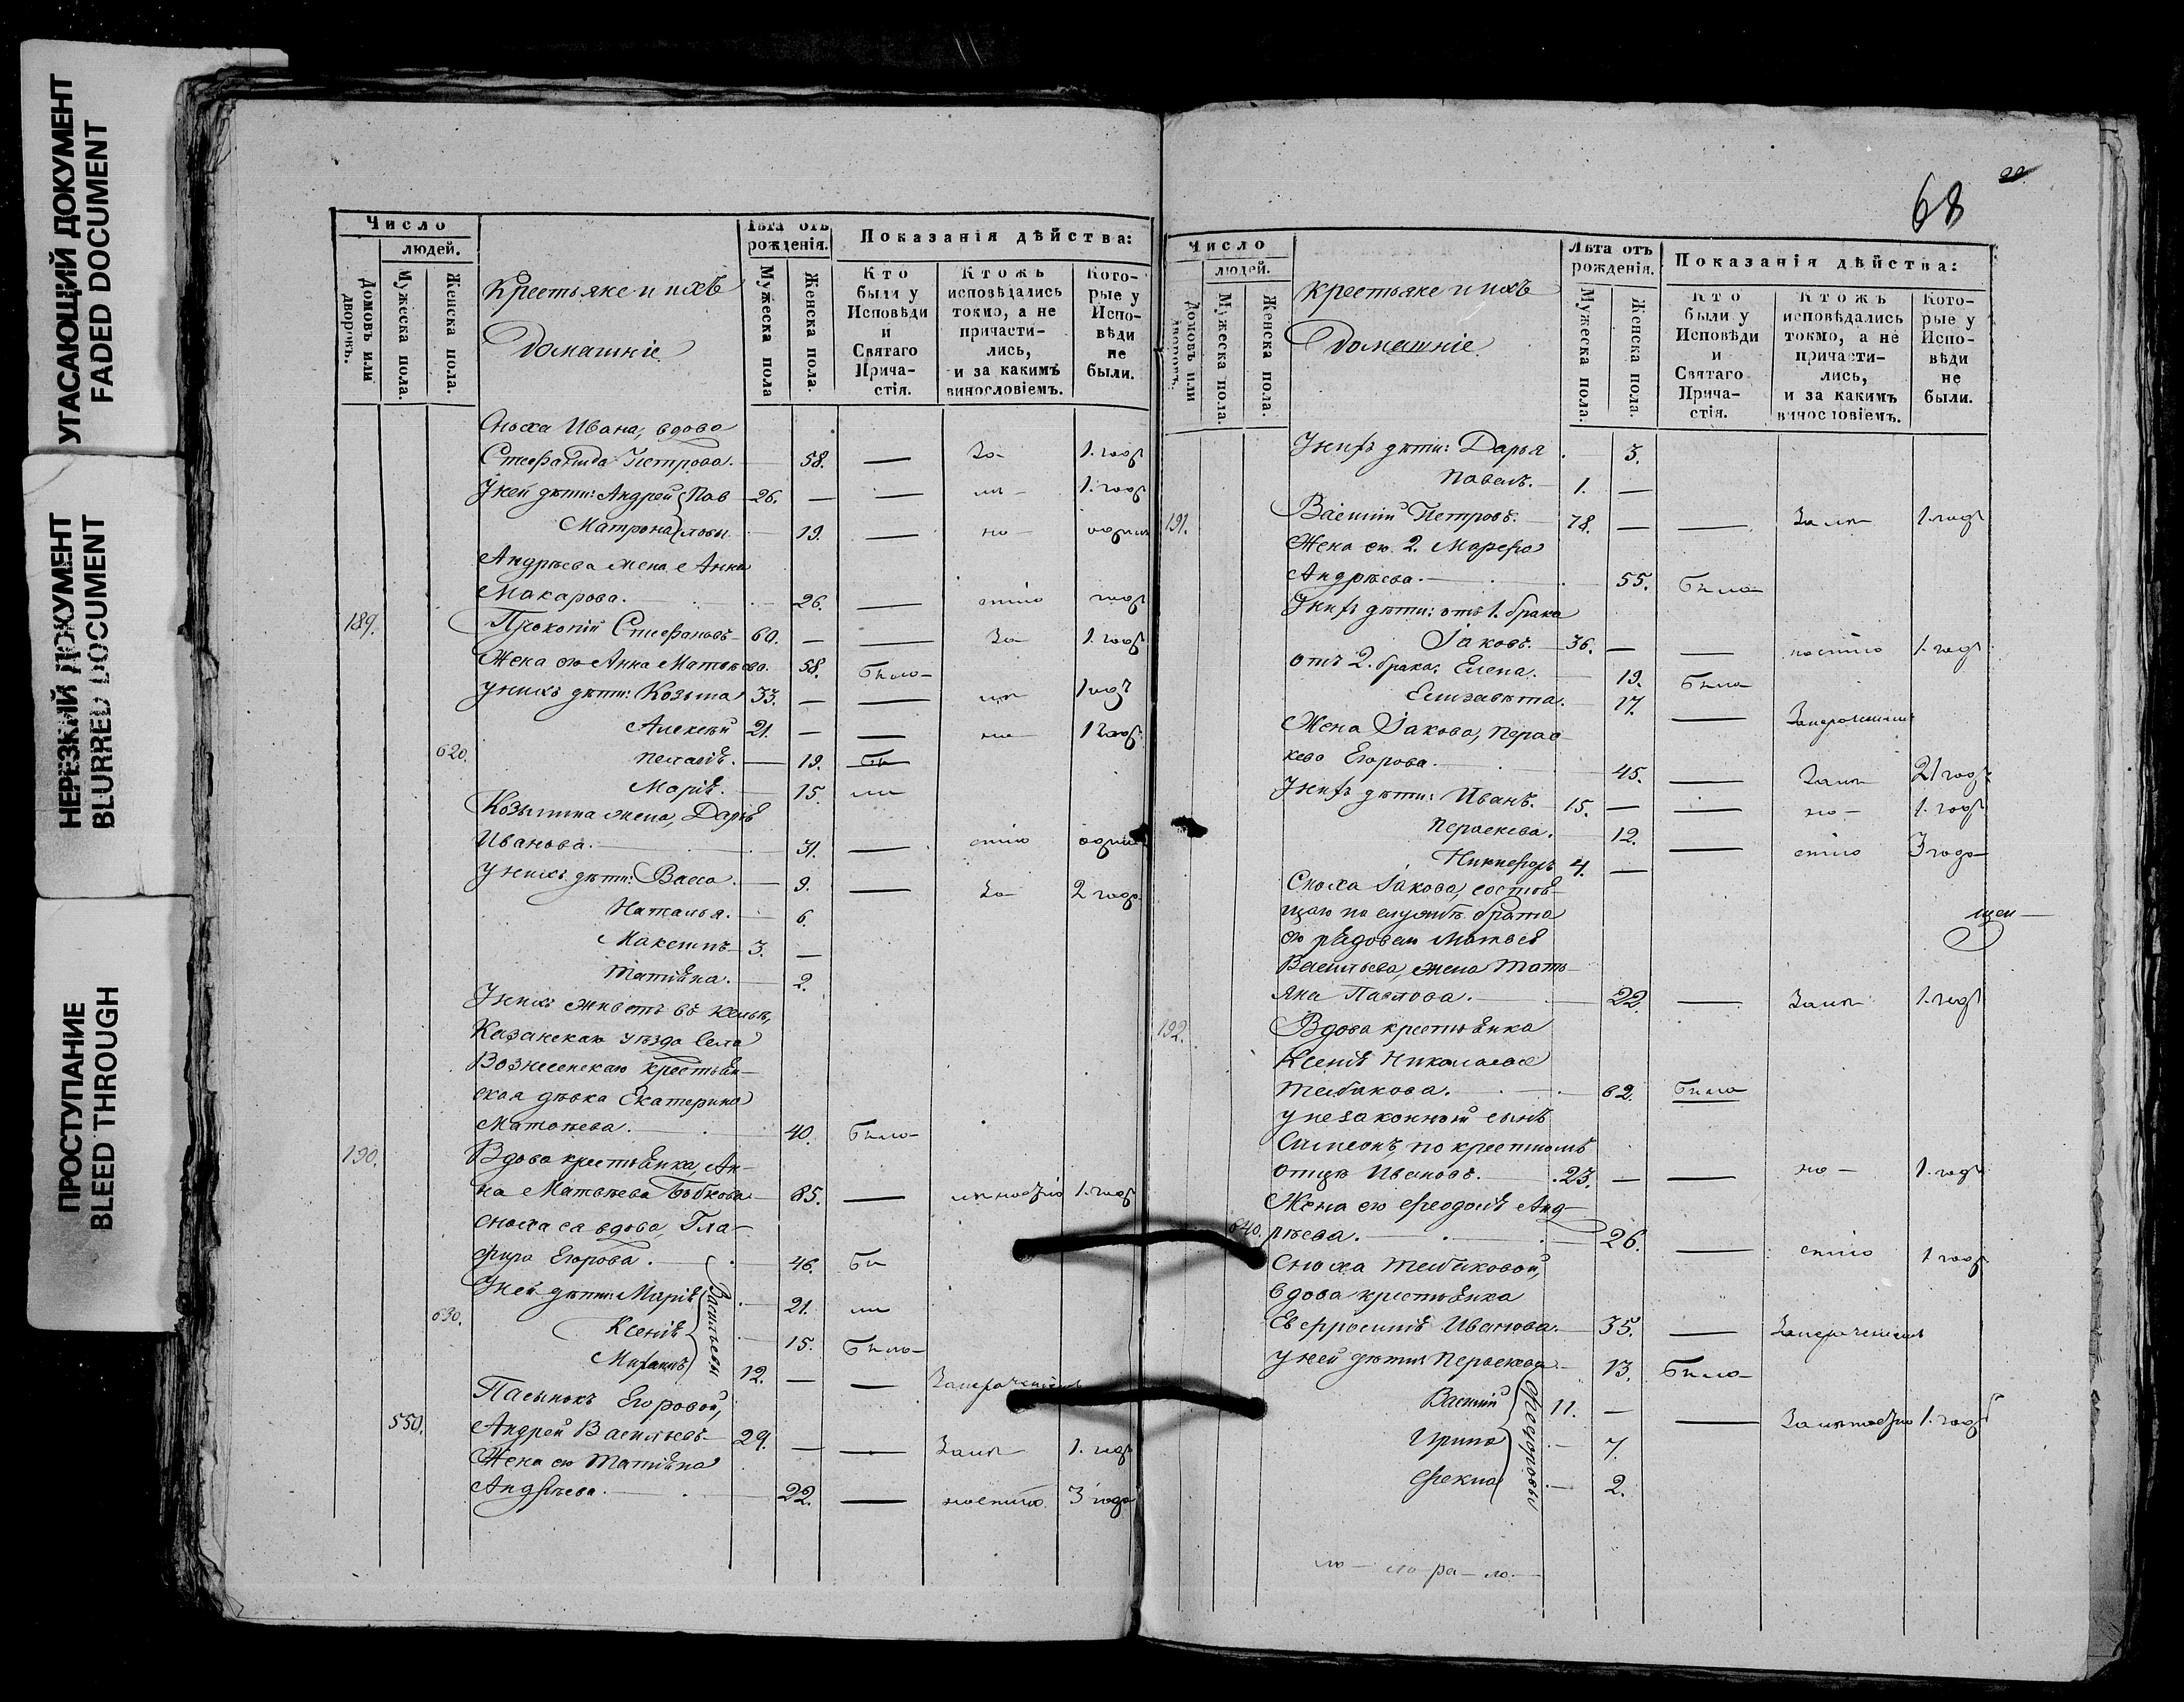 УГАСАЮЩИЙ ДОКУМЕНТ
FADED DOCUMENT
НЕРЕЗКИЙ ДОКУМЕНТ
BLURRED DOCUMENT
ПРОСТУПАНИЕ
BLEED THROUGH
Число
людей.
Домовъ или дворовъ.
Мужеска пола.
Женска пола.
Крестьяне и ихъ
домашніе
Лѣта отъ рожденія.
Мужеска пола
Женска пола.
Показанія дѣйства:
Кто были у Исповѣди и Святаго Прича-стія.
Ктожъ исповѣдались токмо, а не причасти-лись, и за какимъ винословіемъ.
Кото-рые у Испо-вѣди не были.
Сноха Ивана, вдова
Стефанида Петрова. 58. — За 1. годъ
У ней дѣти: Андрей Пав 26. — — лѣ 1. годъ
Матрона ловы. 19. — но одинъ
Андрѣева жена Анна
Макарова. 26. — стію годъ
189. Прокопій Стефановъ 60. — — За 1. годъ
Жена его Анна Матвѣева. 58. Была
У нихъ дѣти: Козьма 33. — — лѣ 1 годъ
Алексѣй 21. — — но 1 годъ
620. Пелагія. 19. Бы
Марія. 15. ли
Козьмина жена, Дарія
Иванова. 31. — стію одинъ
У нихъ дѣти: Васса. 9. — За 2 года
Наталья. 6.
Максимъ 3. —
Татіяна. 2.
У нихъ живетъ въ кельѣ,
Казанскаго уѣзда села
Вознесенскаго крестьян-
ская дѣвка Екатерина
Матвѣева. 40. Была
190. Вдова крестьянка, Ан-
на Матвѣева Бобкова 85. — лѣностію 1. годъ
Сноха ея вдова, Гла-
фира Егорова. 46. Бы
У ней дѣти: Марія 21. ли
630. Ксенія 15. Была
Михаилъ 12. — —
Васильевы
Пасынокъ Егоровой,
550. Андрей Васильевъ 29. — — За лѣ 1. годъ
Жена его Татіяна
Андрѣева. 22. — ностію 3 года
68
Число
людей.
Домовъ или дворовъ.
Мужеска пола.
Женска пола.
Крестьяне и ихъ
домашніе.
Лѣта отъ рожденія.
Мужеска пола.
Женска пола.
Показанія дѣйства:
Кто были у Исповѣди и Святаго Прича-стія.
Ктожъ исповѣдались токмо, а не причасти-лись, и за какимъ винословіемъ.
Кото-рые у Испо-вѣди не были.
У нихъ дѣти: Дарья 3.
Павелъ. 1. —
191. Василій Петровъ. 78. — — За лѣ 1 годъ
Жена его 2. Марфа
Андрѣева. 55. Была
У нихъ дѣти: отъ 1. брака
Іаковъ. 36. — — ностію 1. годъ
отъ 2. брака: Елена. 19. Была
Елизавета. 17. —
Жена Іакова, Перас-
кева Егорова. 45. — За лѣ 21 годъ
У нихъ дѣти: Иванъ. 15. — — но 1. годъ
Пераскева. 12. — стію 3 года
Никифоръ 4. —
Сноха Іакова, состоя-
щаго на службѣ брата
его рядоваго Матвея
Васильева, жена Тать-
яна Павлова. 22. — За лѣ 1. годъ
192. Вдова крестьянка
Ксенія Николаева
62. Была
У ней законный сынъ
Симеонъ по крестному
отцу Ивановъ. 23. — — но 1. годъ
Жена его Феодосія Анд-
640. рѣева. 26. — стію 1 годъ
Сноха
вдова крестьянка
Евфросинія Иванова. 35. —
У ней дѣти: Пераскева 13. Была
Василій 11. — — За лѣностію 1. годъ
Ирина 7.
Фекла 2.
Феодоровы